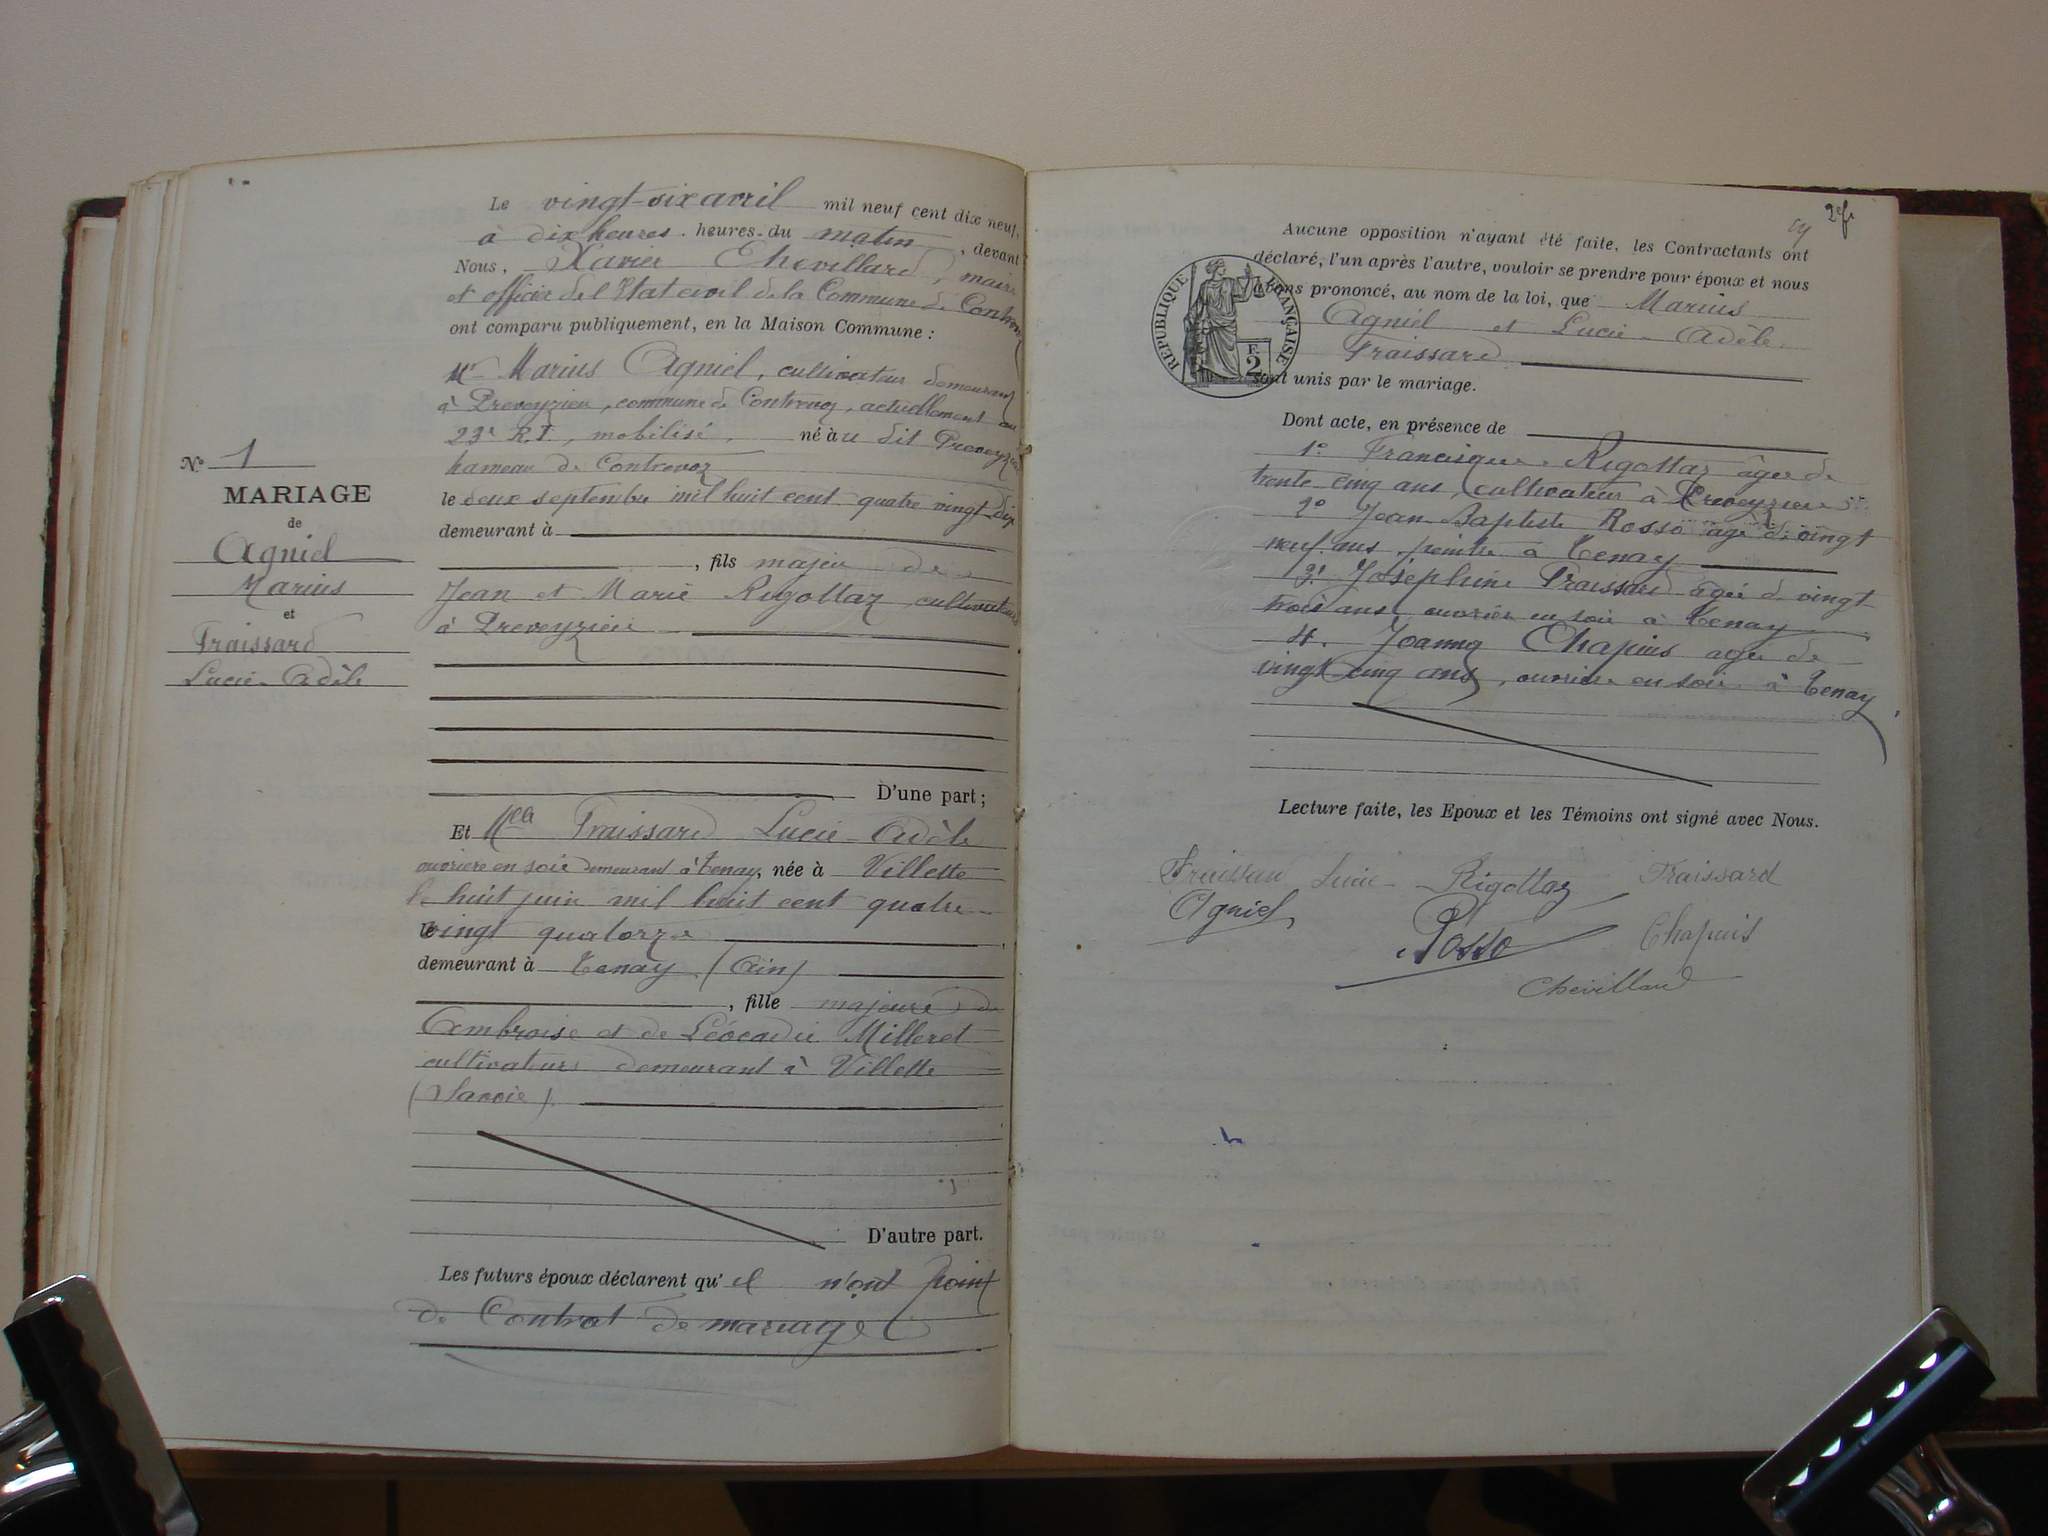 Le vingt-six avril mil neuf cent dix neuf,
à dix heures heures du matin, devant
Nous, Xavier Chevillard, maire
et officier de l'Etat civil de la Commune de Contrevoz
ont comparu publiquement, en la Maison Commune :
Mr Marius Agniel, cultivateur demeurant
à Preveyzieu, commune de Contrevoz, actuellement au
23e R.I., mobilisé, né à au dit Preveyzieu
hameau de Contrevoz
le deux septembre mil huit cent quatre vingt-dix
demeurant à
, fils majeur de
Jean et Marie Rigollaz cultivateurs
à Preveyzieu
D'une part ;
N° 1
MARIAGE
de
Agniel
Marius
et
Fraissard
Lucie-Adèle
Et Melle Fraissard Lucie-Adèle
ouvrière en soie demeurant à Tenay, née à Villette
le huit juin mil huit cent quatre-
le vingt quatorze
demeurant à Tenay (Ain)
, fille majeure de
Ambroise et de Léocadie Milleret
cultivateurs demeurant à Villette
(Savoie)
D'autre part.
Les futurs époux déclarent qu'il n'ont point
de Contrat de mariage
2e f.
Aucune opposition n'ayant été faite, les Contractants ont
déclaré, l'un après l'autre, vouloir se prendre pour époux et nous
avons prononcé, au nom de la loi, que Marius
Agniel et Lucie-Adèle
Fraissard
sont unis par le mariage.
RÉPUBLIQUE FRANÇAISE
F.
2
Dont acte, en présence de
1° Francisque Rigollaz âgé de
trente cinq ans, cultivateur à Preveyzieu
2° Jean-Baptiste Rosso âgé de vingt
neuf ans, peintre à Tenay
3° Joséphine Fraissard âgée de vingt
trois ans, ouvrière en soie à Tenay
4. Joanny Chapuis agée de
vingt cinq ans, ouvrière en soie à Tenay
Lecture faite, les Epoux et les Témoins ont signé avec Nous.
Fraissard Lucie Rigollaz Fraissard
Agniel Rosso Chapuis
Chevillard